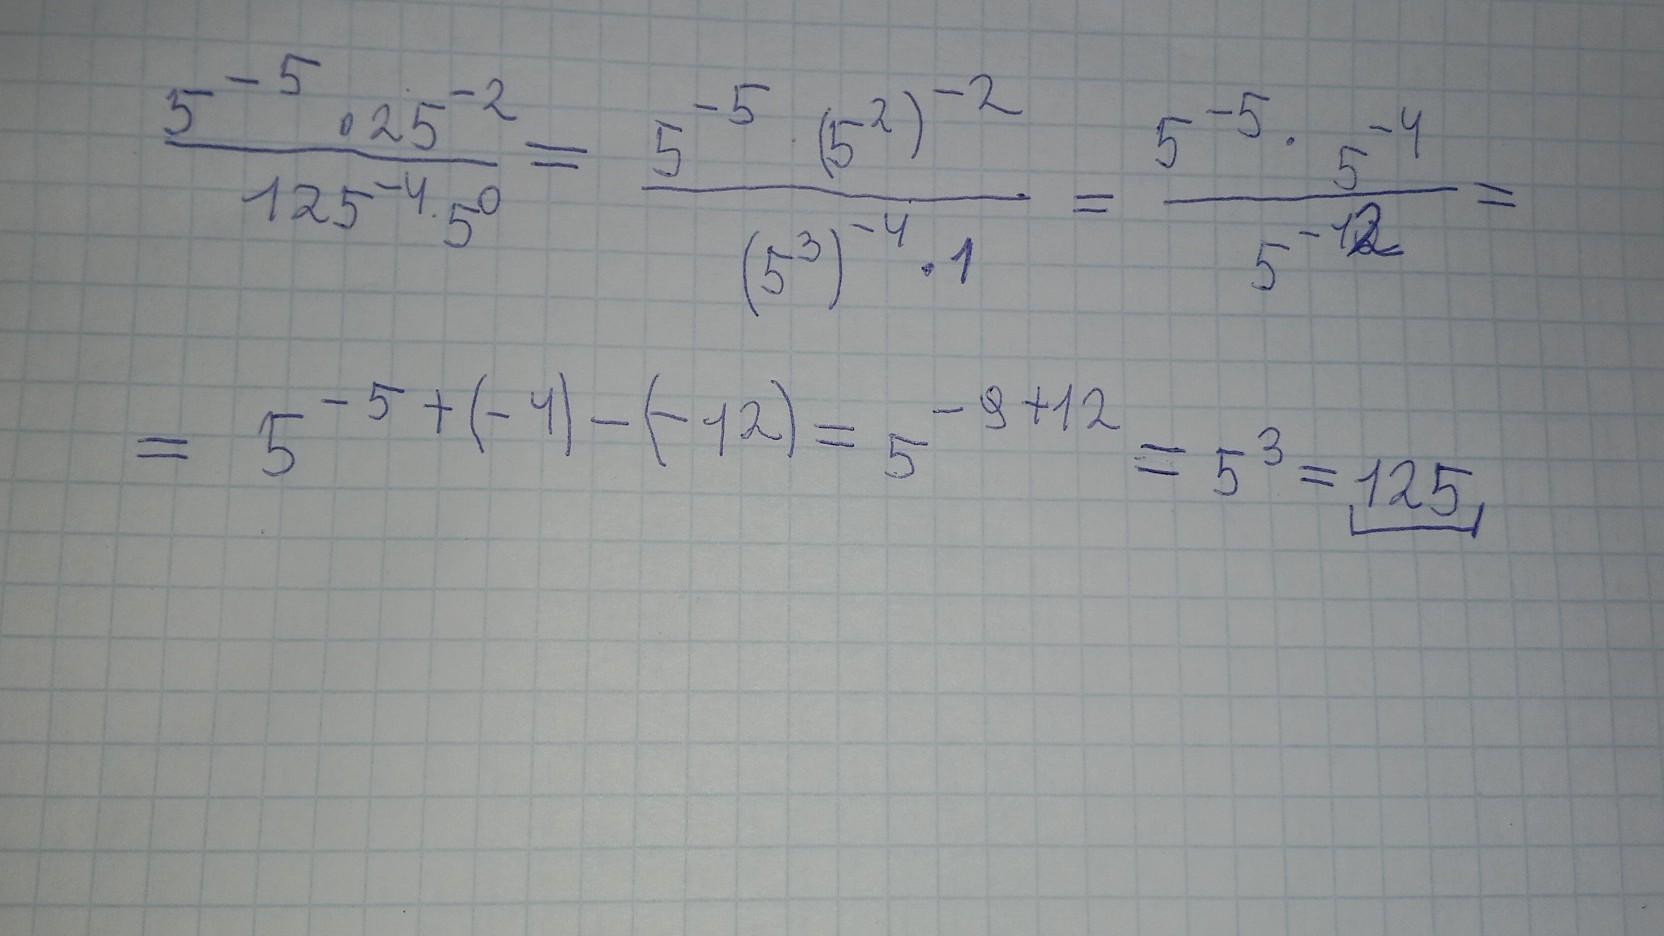 \frac{5^{-5} \cdot 25^{-2}}{125^{-4} \cdot 5^{0}} = \frac{5^{-5} \cdot (5^{2})^{-2}}{(5^{3})^{-4} \cdot 1} = \frac{5^{-5} \cdot 5^{-4}}{5^{-12}} =
= 5^{-5+(-4)-(-12)} = 5^{-9+12} = 5^{3} = 125